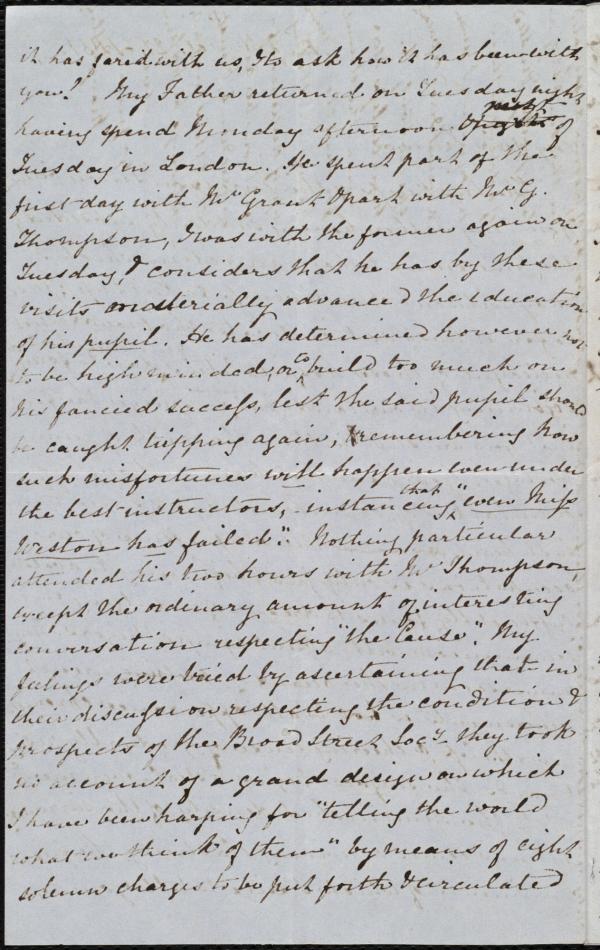 it has fared with us, & to ask how it has been with
you? My Father returned on Tuesday night
having spend Monday afternoon & most of
Tuesday in London. He spent part of the
first day with Mr Grant & part with Mr G.
Thompson, & was with the former again on
Tuesday, & considers that he has by these
visits materially advanced the education
of his pupil. He has determined however not
to be high minded, or to build too much on
his fancied success, lest the said pupil should
be caught tripping again, remembering how
such misfortunes will happen even under
the best instructors, instancing that "even Miss
Weston has failed". Nothing particular
attended his two hours with Mr Thompson,
except the ordinary amount of interesting
conversation respecting "the Cause". My
feelings were tried by ascertaining that in
their discussion respecting the condition &
prospects of the Broad Street Socy they took
no account of a grand design on which
I have been harping for "telling the world
what we think of them" by means of eight
solemn charges to be put forth & circulated